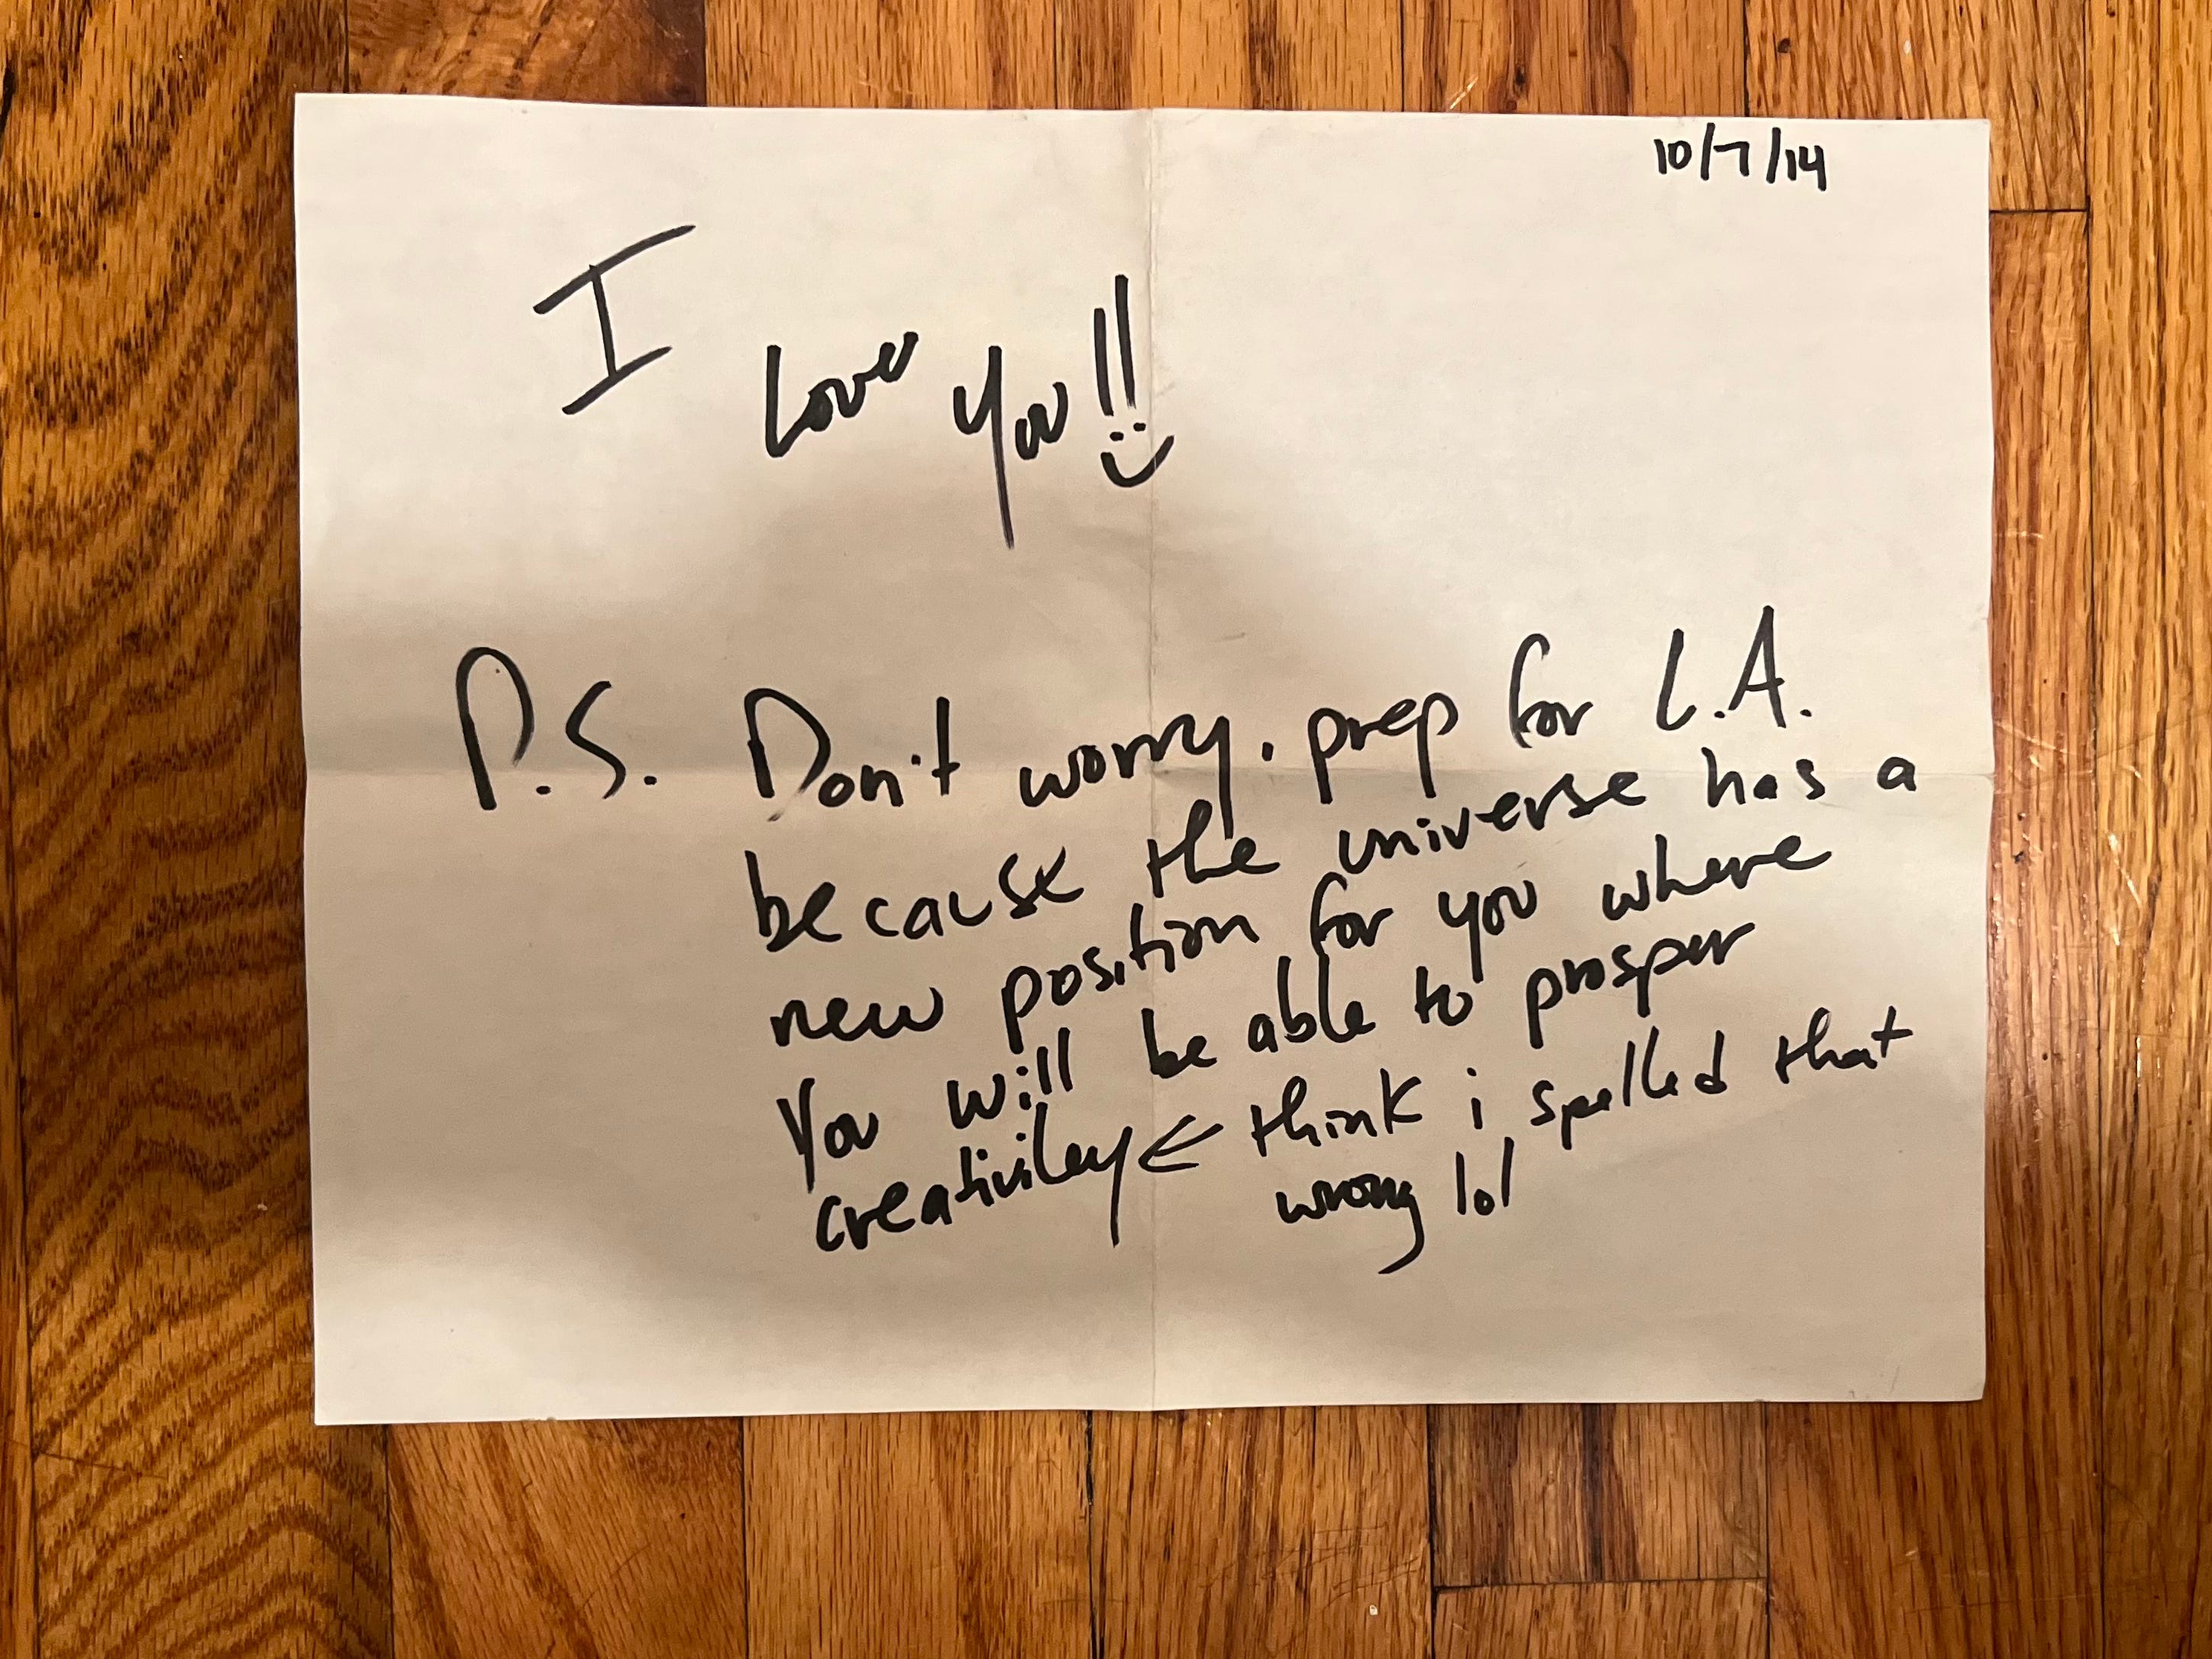 10/7/14
I Love You!!
P.S. Don't worry. prep for L.A.
because the universe has a
new position for you where
You will be able to prosper
creativiley ← think i spelled that
wrong lol